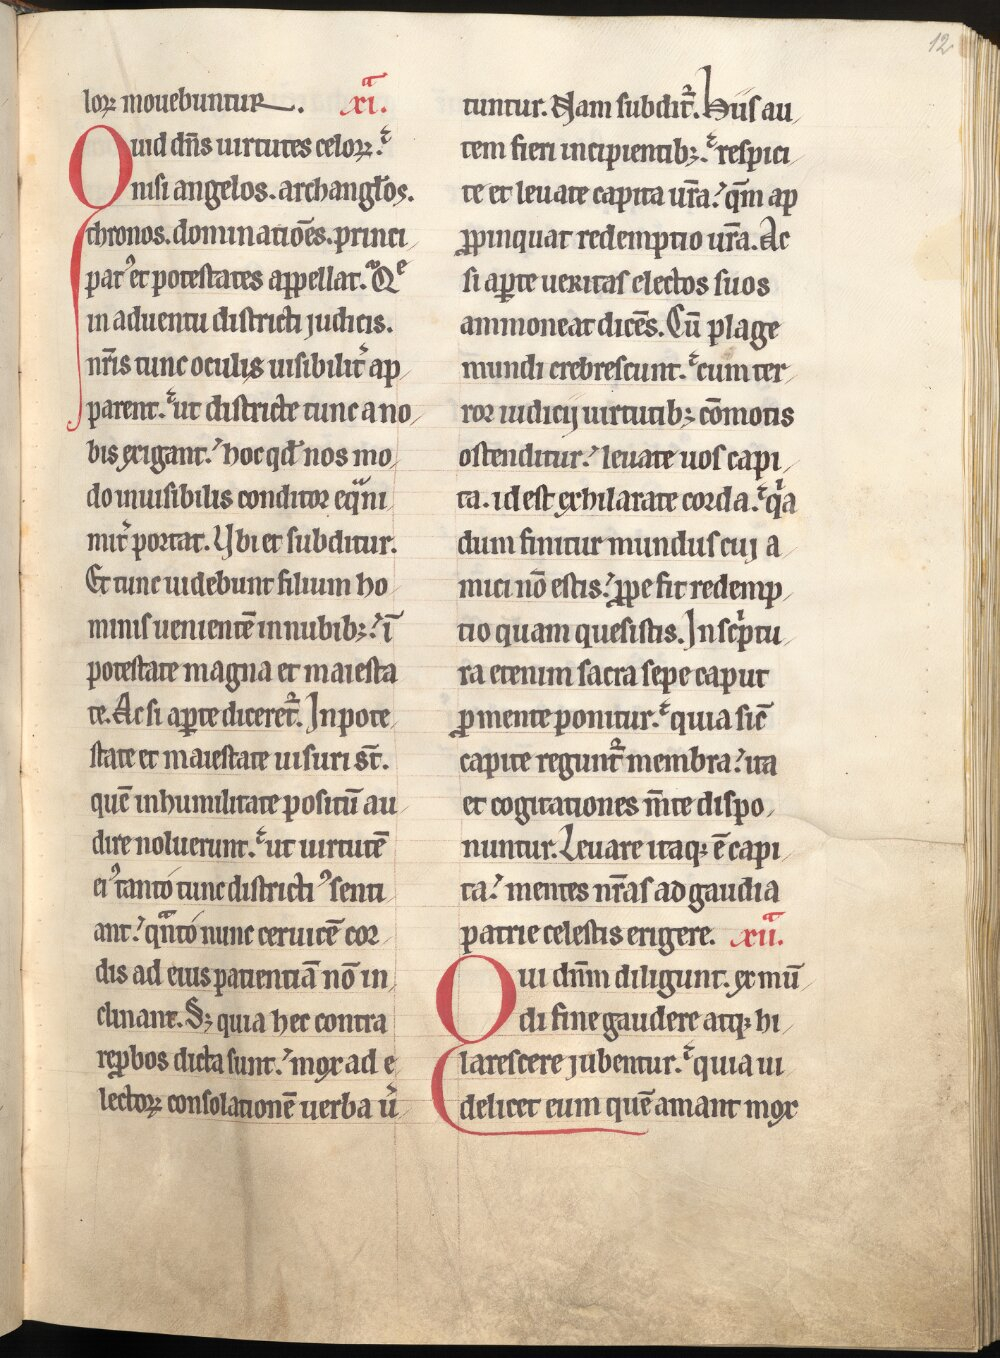 12
loꝝ mouebuntur. xi.ͣ
Quid dn̄s uirtutes celoꝝ.
nisi angelos. archangl̄os.
thronos. dominatiōes. princi
pat᷒ et potestates appellat. Qͤ
in aduentu districti judicis.
nr̄is tunc oculis uisibilit̾ ap
parent. ut districte tunc a no
bis exigant. hoc qd̄ nos mo
do inuisibilis conditor eqͣni
mit̾ portat. Ubi et subditur.
Et tunc uidebunt filium ho
minis uenientē in nubibꝫ. ī
potestate magna et maiesta
te. Ac si aꝑte diceret᷑. In pote
state et maiestate uisuri st̄.
quē in humilitate positū au
dire noluerunt. ut uirtutē
ei᷒ tanto tunc districti᷒ senti
ant. qͣnto nunc ceruicē cor
dis ad eius patientiā nō in
clinant. Sꝫ quia hec contra
rep̱bos dicta sunt. mox ad e
lectoꝝ consolationē uerba u̾
tuntur. Nam subdit᷑. Hiis au
tem fieri incipientibꝫ. respici
te et leuate capita ur̄a. qm̄ ap
ꝓpinquat redemptio ur̄a. Ac
si aꝑte ueritas electos suos
ammoneat dicēs. Cū plage
mundi crebrescunt. cum ter
ror iudicij uirtutibꝫ cōmotis
ostenditur. leuate uos capi
ta. id est exhilarate corda. qͥa
dum finitur mundus cuj a
mici nō estis. ꝓpe fit redemp
tio quam quesistis. In scͥptu
ra etenim sacra sepe caput
ꝓ mente ponitur. quia sic̄
capite regunt᷑ membra. ita
et cogitationes m̄te dispo
nuntur. Leuare itaqꝫ ē capi
ta. mentes nr̄as ad gaudia
patrie celestis erigere. xii.ͣ
Qui dn̄m diligunt. ex mū
di fine gaudere atqꝫ hi
larescere jubentur. quia ui
delicet eum quē amant mox